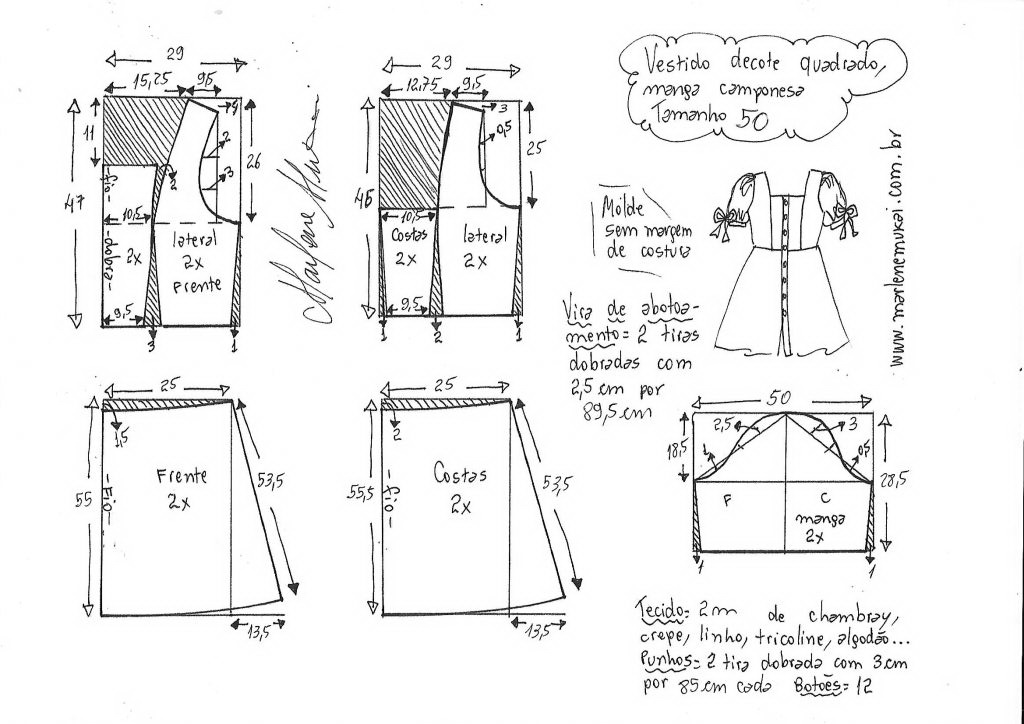 Vestido decote quadrado,
manga camponesa
Tamanho 50
29
15,25
95
4
11
2
2
3
47
26
-fio-
10,5
dobra
2x
lateral
2x
Frente
9,5
3
1
29
12,75
9,5
3
0,5
46
25
10,5
Costas
2x
lateral
2x
9,5
1
2
1
Molde
sem margem
de costura
www.marlenemukai.com.br
Vira de abotoa-
mento= 2 tiras
dobradas com
2,5 cm por
89,5 cm
25
1,5
55
-Fio-
Frente
2x
53,5
13,5
25
2
55,5
-fio-
Costas
2x
53,5
13,5
50
2,5
3
18,5
1
0,5
28,5
F
C
manga
2x
1
1
Tecido= 2m de chambray,
crepe, linho, tricoline, algodão...
Punhos= 2 tira dobrada com 3 cm
por 85 cm cada Botões= 12